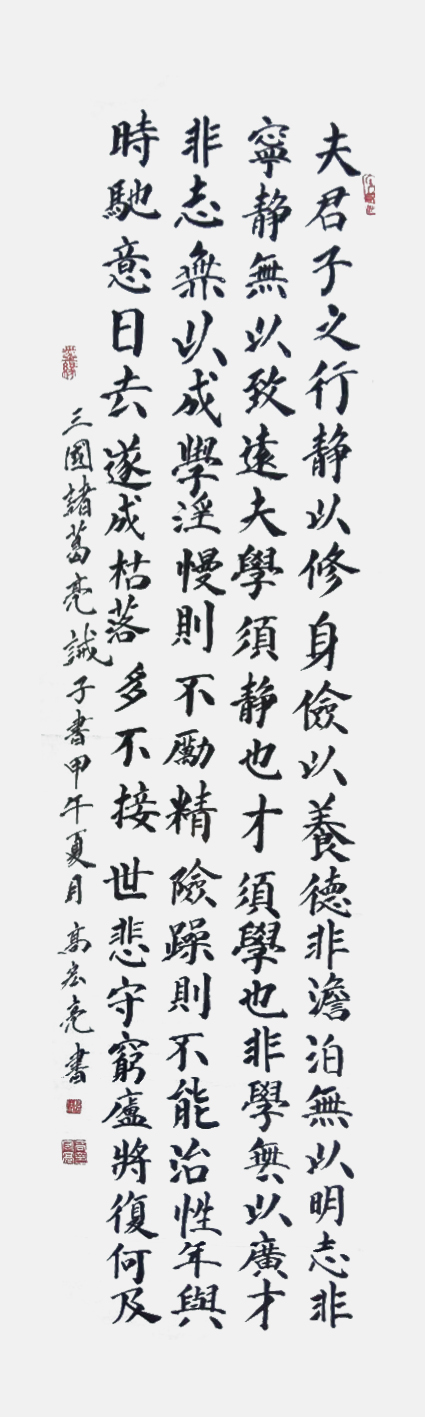 夫君子之行静以修身儉以養德非澹泊無以明志非
寧静無以致遠夫學須静也才須學也非學無以廣才
非志無以成學淫慢則不勵精險躁則不能治性年與
時馳意日去遂成枯落多不接世悲守窮廬將復何及
三國諸葛亮誡子書甲午夏月高宏亮書